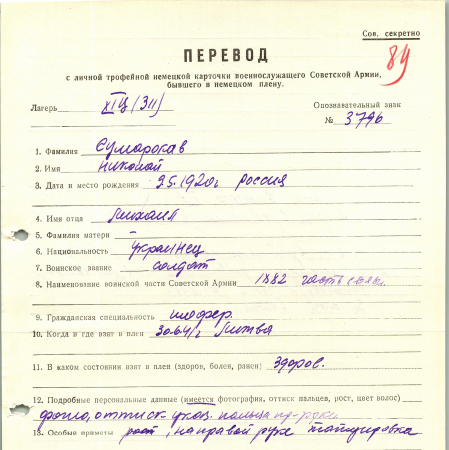 Сов. секретно
89
ПЕРЕВОД
с личной трофейной немецкой карточки военнослужащего Советской Армии,
бывшего в немецком плену.
Лагерь XIЦ (311)
Опознавательный знак
№ 3796
1. Фамилия Сумарокав
2. Имя Николай
3. Дата и место рождения 9.5.1920г Россия
4. Имя отца Михаил
5. Фамилия матери –
6. Национальность украинец
7. Воинское звание солдат
8. Наименование воинской части Советской Армии 1882 часть связи.
9. Гражданская специальность шофер.
10. Когда и где взят в плен 30.6.41г Литва
11. В каком состоянии взят в плен (здоров, болен, ранен) здоров.
12. Подробные персональные данные (имеется фотография, оттиск пальцев, рост, цвет волос)
фото, оттиск указ. пальца пр-руки.
13. Особые приметы рост, на правой руке татуировка